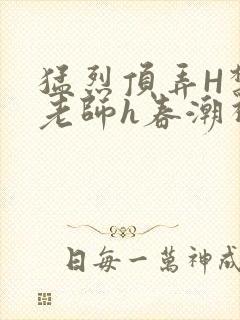 猛烈頂弄H
老師h春潮
日每一萬神成